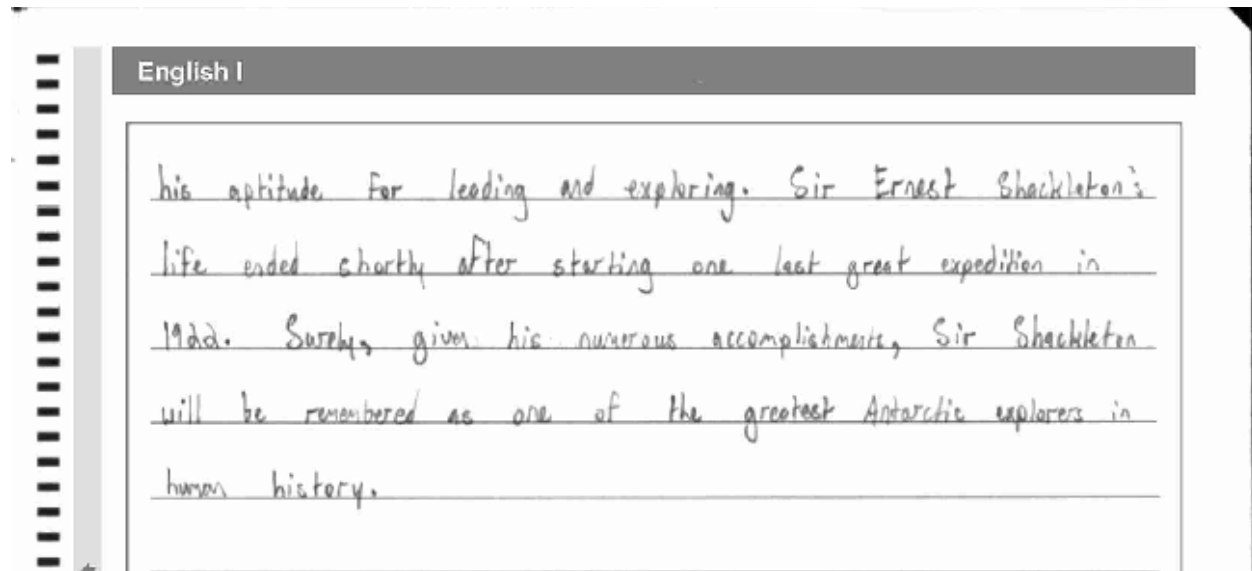 English I
his aptitude for leading and exploring. Sir Ernest Shackleton's
life ended shortly after starting one last great expedition in
1922. Surely, given his numerous accomplishments, Sir Shackleton
will be remembered as one of the greatest Antarctic explorers in
human history.